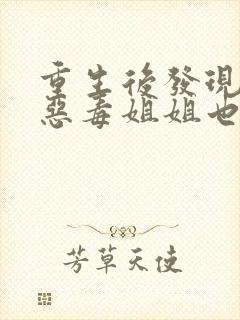 重生後發現
惡毒姐姐也
芳草天使